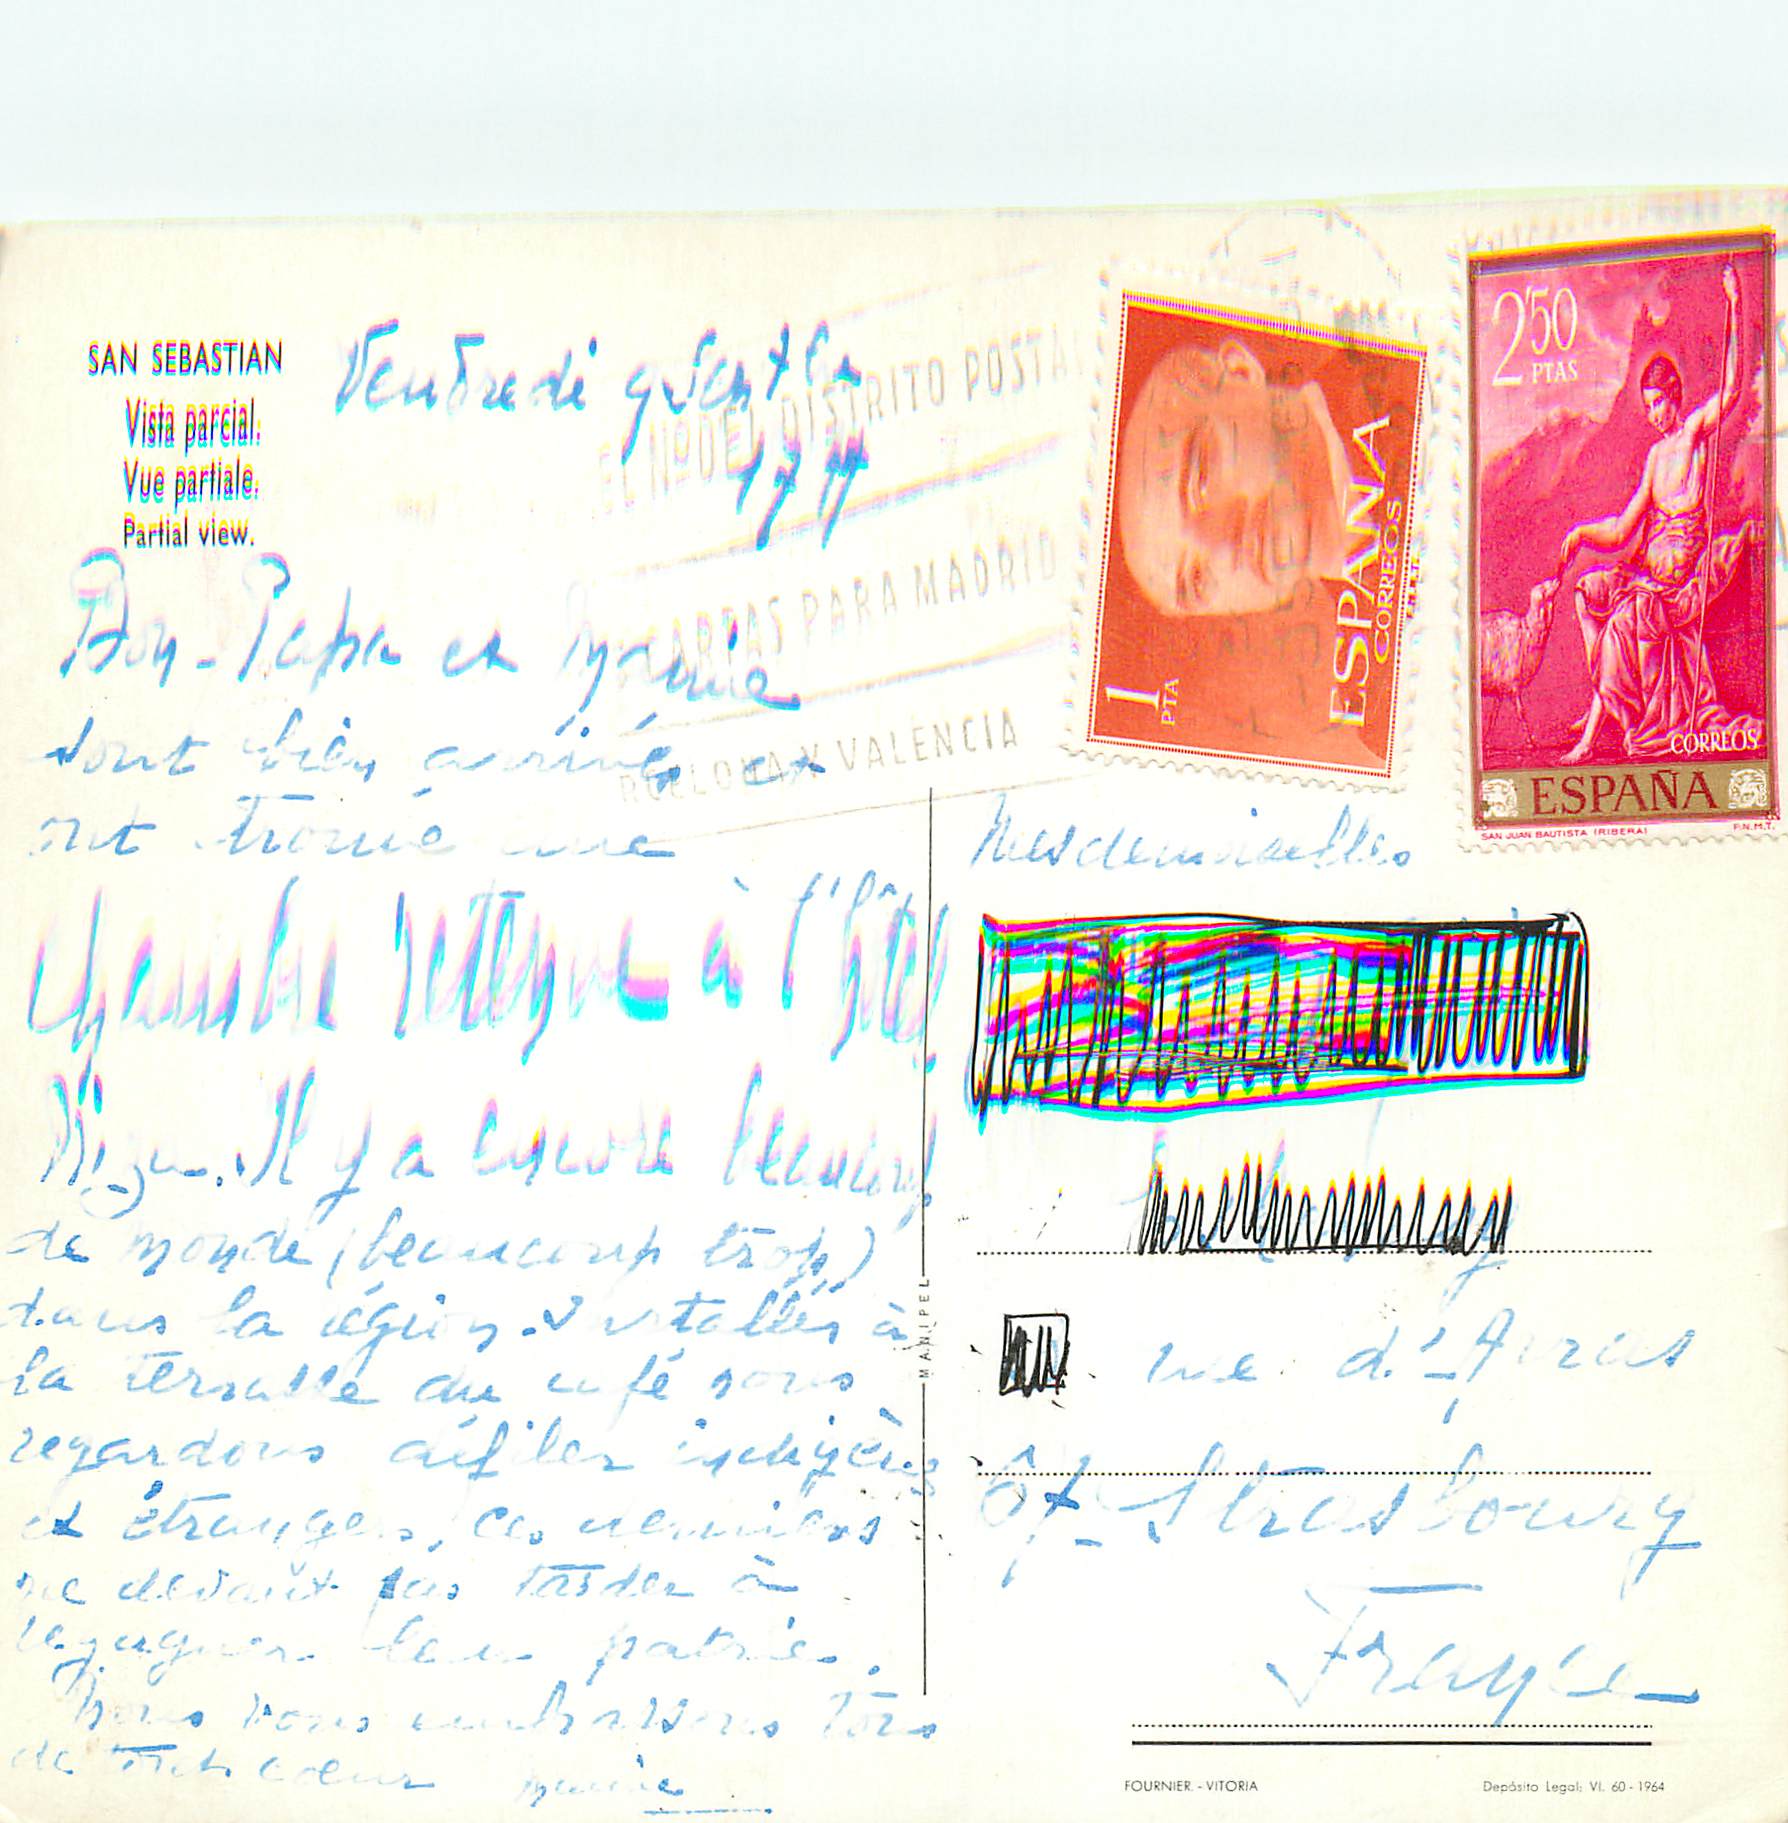 SAN SEBASTIAN
Vista parcial.
Vue partiale.
Partial view.
Vendredi 9 Sept
Bon-Papa et Mamie
sont bien arrivés et
ont trouvé une
chambre à l'hôtel
Il y a encore beaucoup
de monde (beaucoup trop)
dans la région. Installés à
la terrasse du café nous
regardons défiler indigènes
et étrangers, ces derniers
ne devant pas tarder à
regagner leur patrie.
Nous vous embrassons tous
de tout coeur Mamie
EL Nº DEL DISTRITO POSTAL
CARTAS PARA MADRID
BARCELONA Y VALENCIA
1 PTA
ESPAÑA
CORREOS
2'50
PTAS
CORREOS
ESPAÑA
SAN JUAN BAUTISTA (RIBERA)
F.N.M.T.
Mesdemoiselles
rue d'Arras
67-Strasbourg
France
MANIPEL
FOURNIER. - VITORIA
Depósito Legal: VI. 60 - 1964